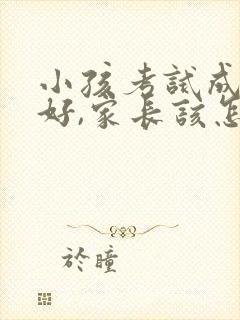 小孩考試成
好,家長該怎
於瞳